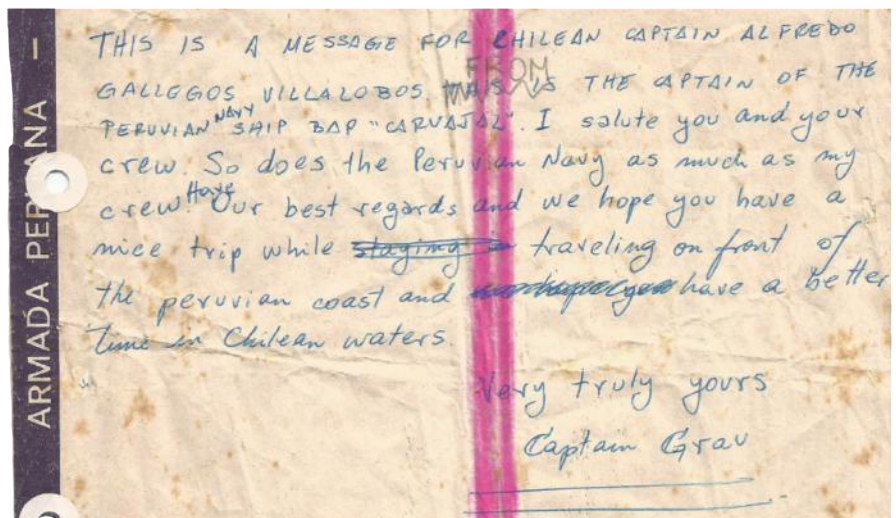 ARMADA PERUANA —
THIS IS A MESSAGE FOR CHILEAN CAPTAIN ALFREDO
GALLEGOS VILLALOBOS THIS IS THE CAPTAIN OF THE
FROM
PERUVIAN NAVY SHIP BAP "CARVAJAL". I salute you and your
crew. So does the Peruvian Navy as much as my
crew. Have Our best regards and we hope you have a
nice trip while staying in traveling on front of
the peruvian coast and have a better
time in Chilean waters.
Very truly yours
Captain Grau